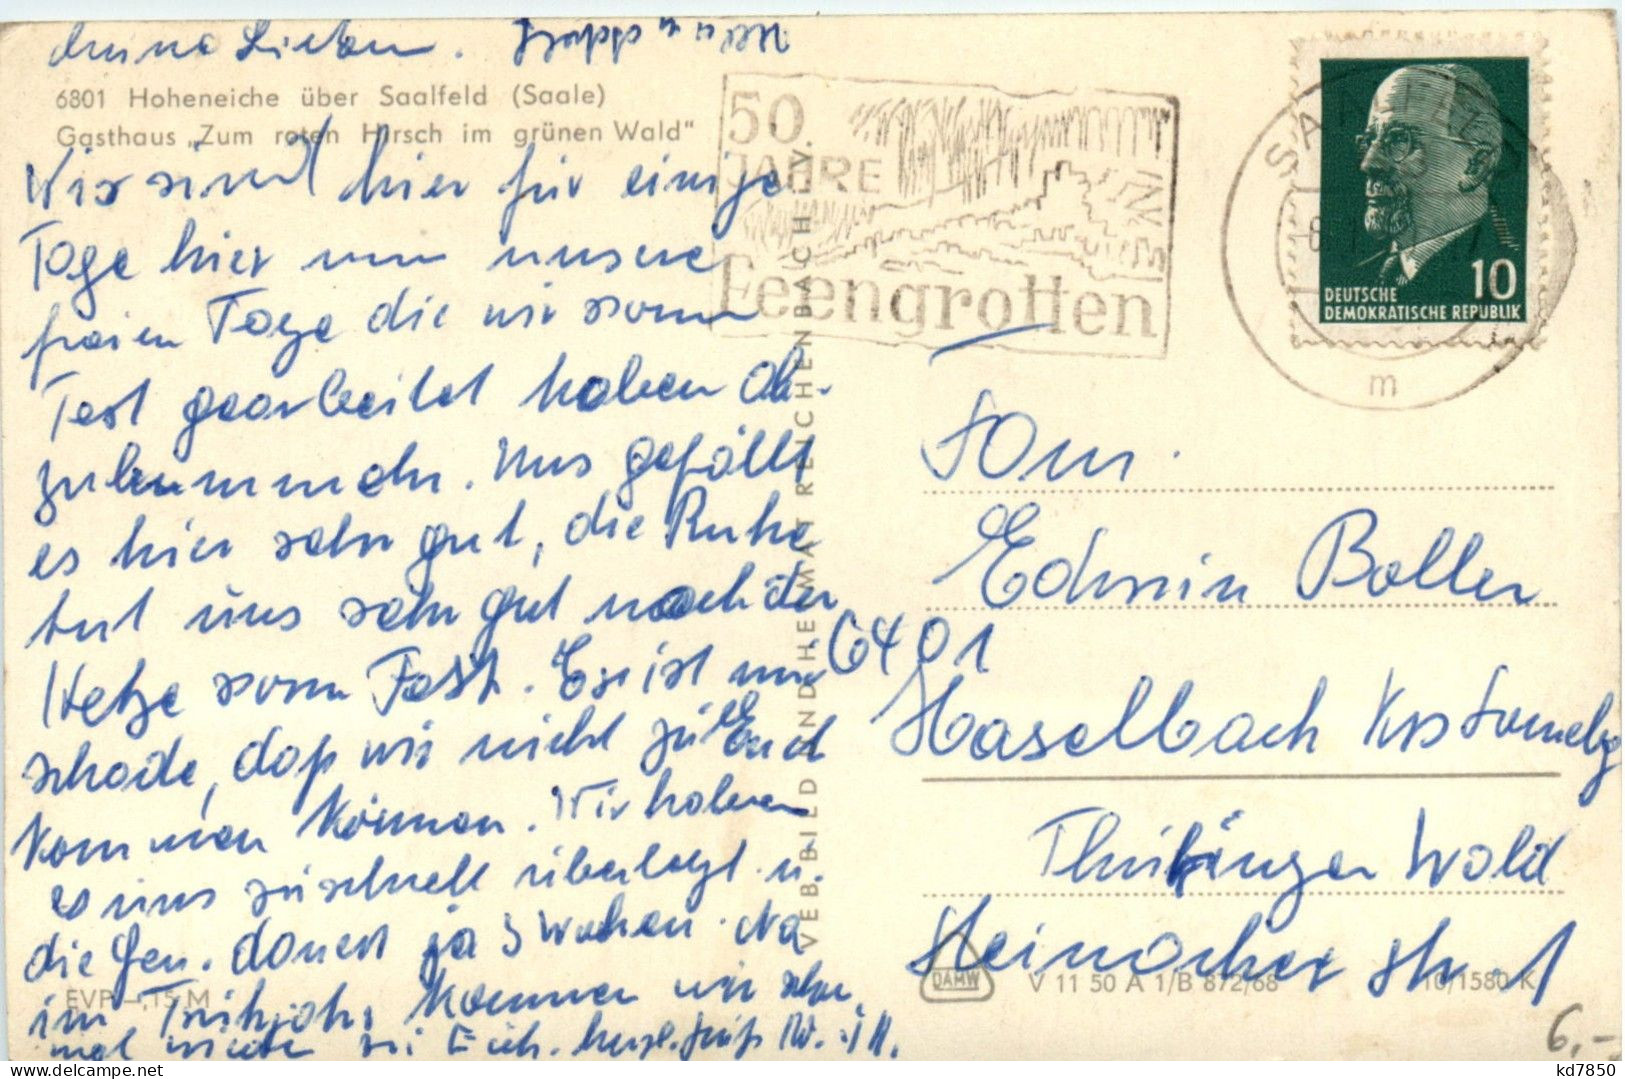 Meine Lieben.
6801 Hoheneiche über Saalfeld (Saale)
Gasthaus „Zum roten Hirsch im grünen Wald"
Wir sind hier für einige
Tage hier um unsere
freien Tage die wir vom
Fest gearbeitet haben ab-
zubummeln. Uns gefällt
es hier sehr gut, die Ruhe
tut uns sehr gut nach der
Hetze vom Fest. Es ist nur
schade, daß wir nicht zu Euch
kommen können. Wir haben
es uns zu schnell überlegt u.
die Gen. dauert ja 3 Wochen. Na
im Frühjahr kommen wir
mal wieder zu Euch. herzl. Grüße
EVP -,15 M
VEB BILD UND HEIMAT REICHENBACH I. V.
50
JAHRE
Feengrotten
SAALFELD
m
10
DEUTSCHE
DEMOKRATISCHE REPUBLIK
Fam.
Edwin Boller
6401
Haselbach Krs Sonnebg
Thüringer Wald
Steinacher Str. 1
DAMW
V 11 50 A 1/B 872/68
10/1580 K
6,-
kd7850